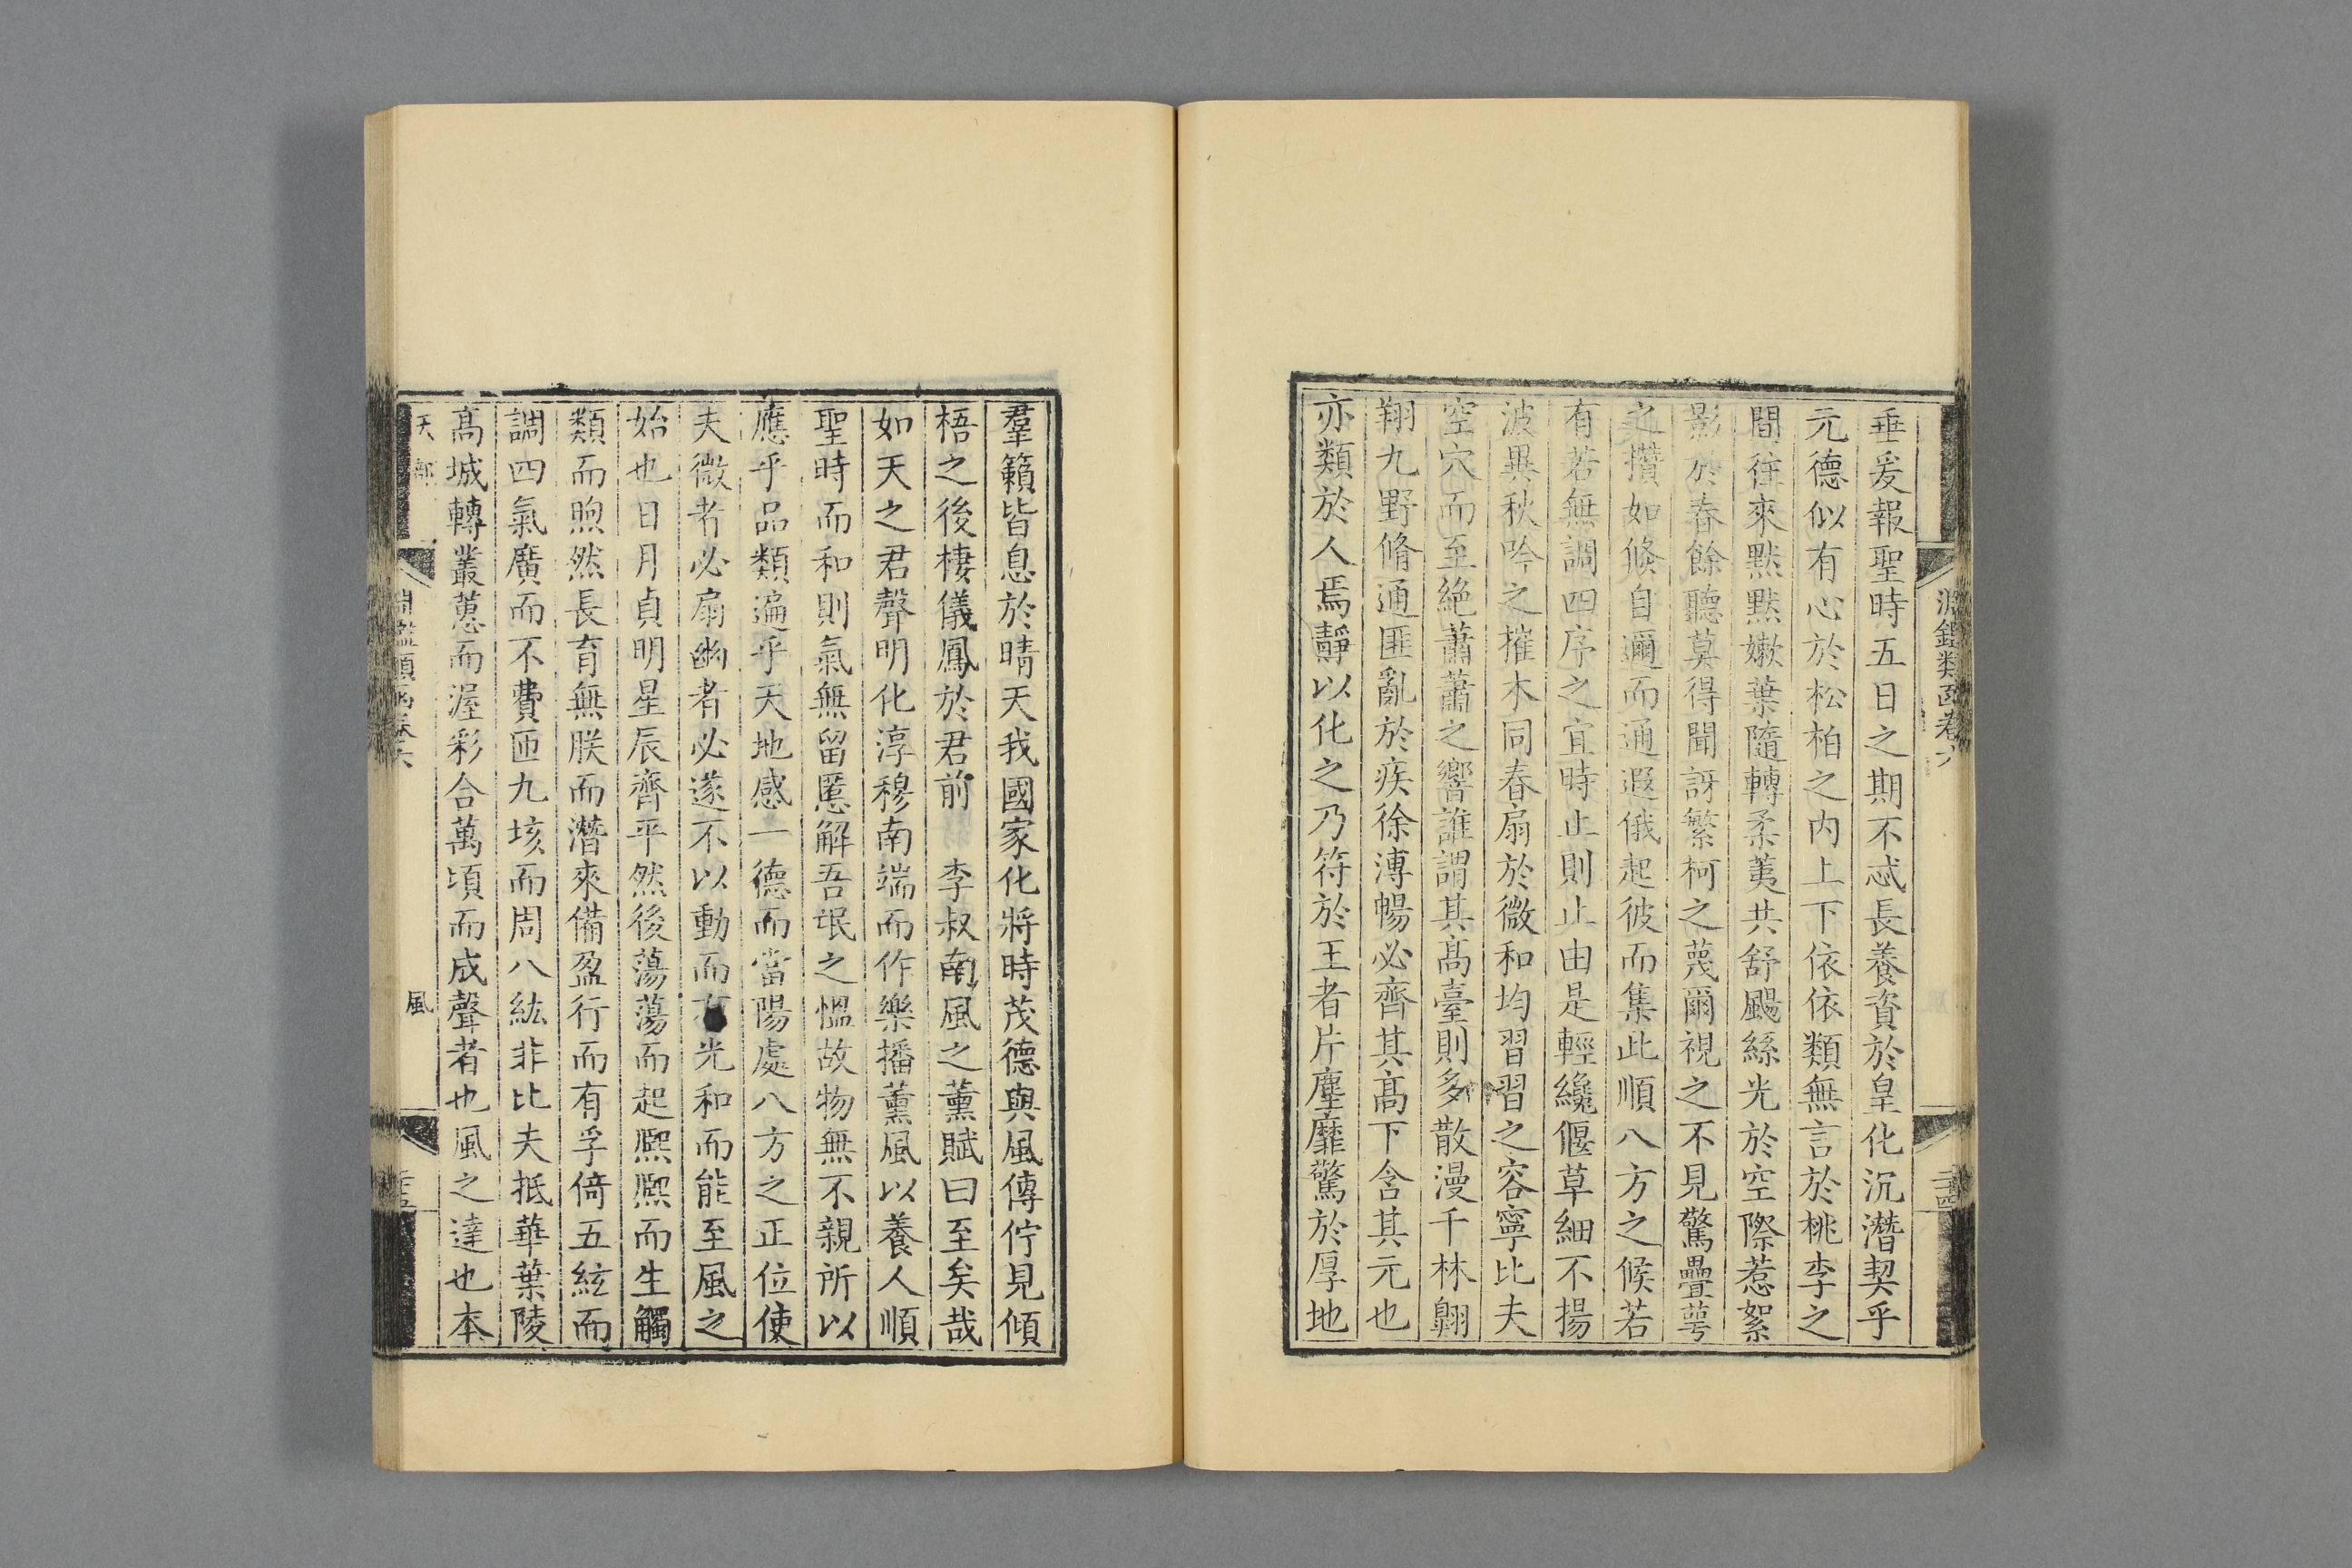 淵鑑類函卷六
二十四
垂爰報聖時五日之期不忒長養資於皇化沉潛契乎
元德似有心於松柏之內上下依依類無言於桃李之
間往來默默嫩葉隨轉柔荑共舒颺絲光於空際惹絮
影於春餘聽莫得聞訝繁柯之蔑爾視之不見驚疊萼
之攢如倏自邇而通遐俄起彼而集此順八方之候若
有若無調四序之宜時止則止由是輕纔偃草細不揚
波異秋吟之摧木同春扇於微和均習習之容寧比夫
空穴而至絕蕭蕭之響誰謂其高臺則多散漫千林翺
翔九野脩通匪亂於疾徐溥暢必齊其高下含其元也
亦類於人焉靜以化之乃符於王者片塵靡驚於厚地
羣籟皆息於晴天我國家化將時茂德與風傳佇見傾
梧之後棲儀鳳於君前 李叔南風之薰賦曰至矣哉
如天之君聲明化淳穆南端而作樂播薰風以養人順
聖時而和則氣無留慝解吾氓之慍故物無不親所以
應乎品類遍乎天地感一德而當陽處八方之正位使
夫微者必扇幽者必遂不以動而光和而能至風之
始也日月貞明星辰齊平然後蕩蕩而起熙熙而生觸
類而煦然長育無朕而潛來備盈行而有孚倚五絃而
調四氣廣而不費匝九垓而周八紘非比夫抵華葉陵
高城轉叢蕙而渥彩合萬頃而成聲者也風之達也本
天部
淵鑑類函卷六
風
二十五